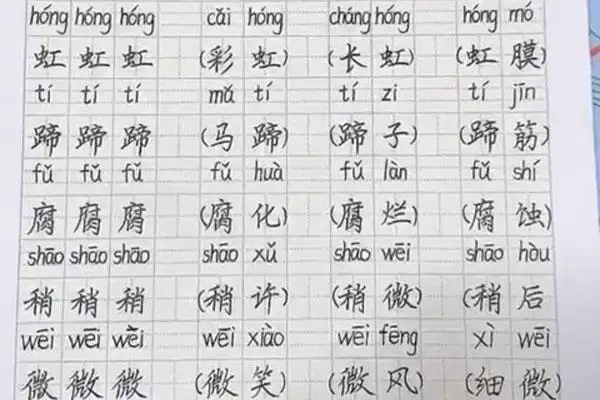 hóng hóng hóng cǎi hóng cháng hóng hóng mó
虹 虹 虹 (彩 虹) (长 虹) (虹 膜)
tí tí tí mǎ tí tí zi tí jīn
蹄 蹄 蹄 (马 蹄) (蹄 子) (蹄 筋)
fǔ fǔ fǔ fǔ huà fǔ làn fǔ shí
腐 腐 腐 (腐 化) (腐 烂) (腐 蚀)
shāo shāo shāo shāo xǔ shāo wēi shāo hòu
稍 稍 稍 (稍 许) (稍 微) (稍 后)
wēi wēi wēi wēi xiào wēi fēng xì wēi
微 微 微 (微 笑) (微 风) (细 微)